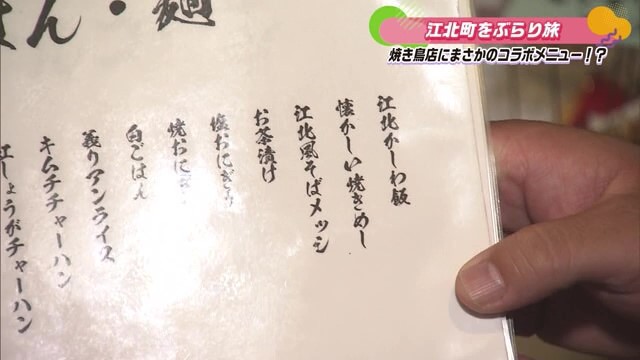 江北町をぶらり旅
焼き鳥店にまさかのコラボメニュー!?
はん・麺
江北かしわ飯
懐かしい焼きめし
江北風そばメッシ
お茶漬け
塩おにぎり
焼おにぎ
白ごはん
義りアンライス
キムチチャーハン
紅しょうがチャーハン